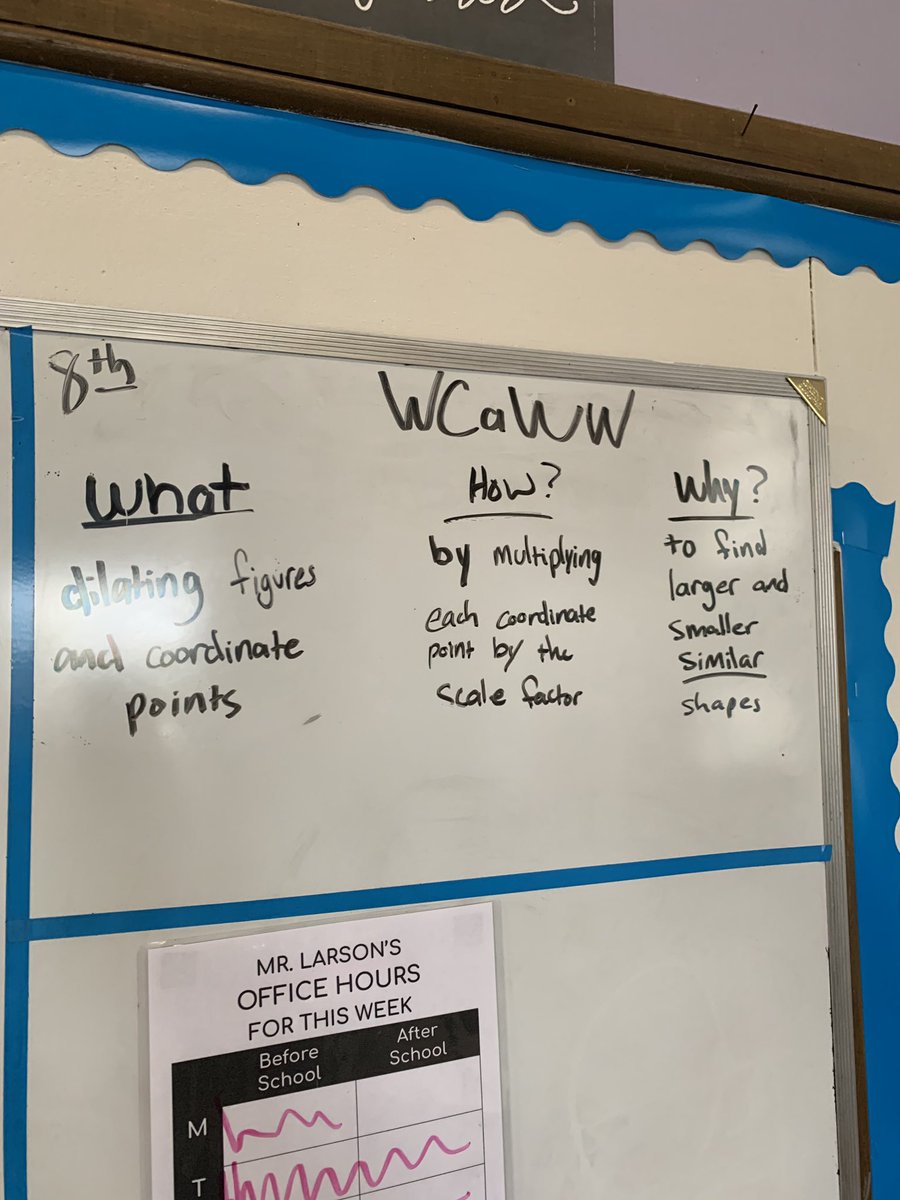 8th
WCaWW
What
dilating figures
and coordinate
points
How?
by multiplying
each coordinate
point by the
scale factor
Why?
to find
larger and
smaller
similar
shapes
MR. LARSON'S
OFFICE HOURS
FOR THIS WEEK
Before
School
After
School
M
T